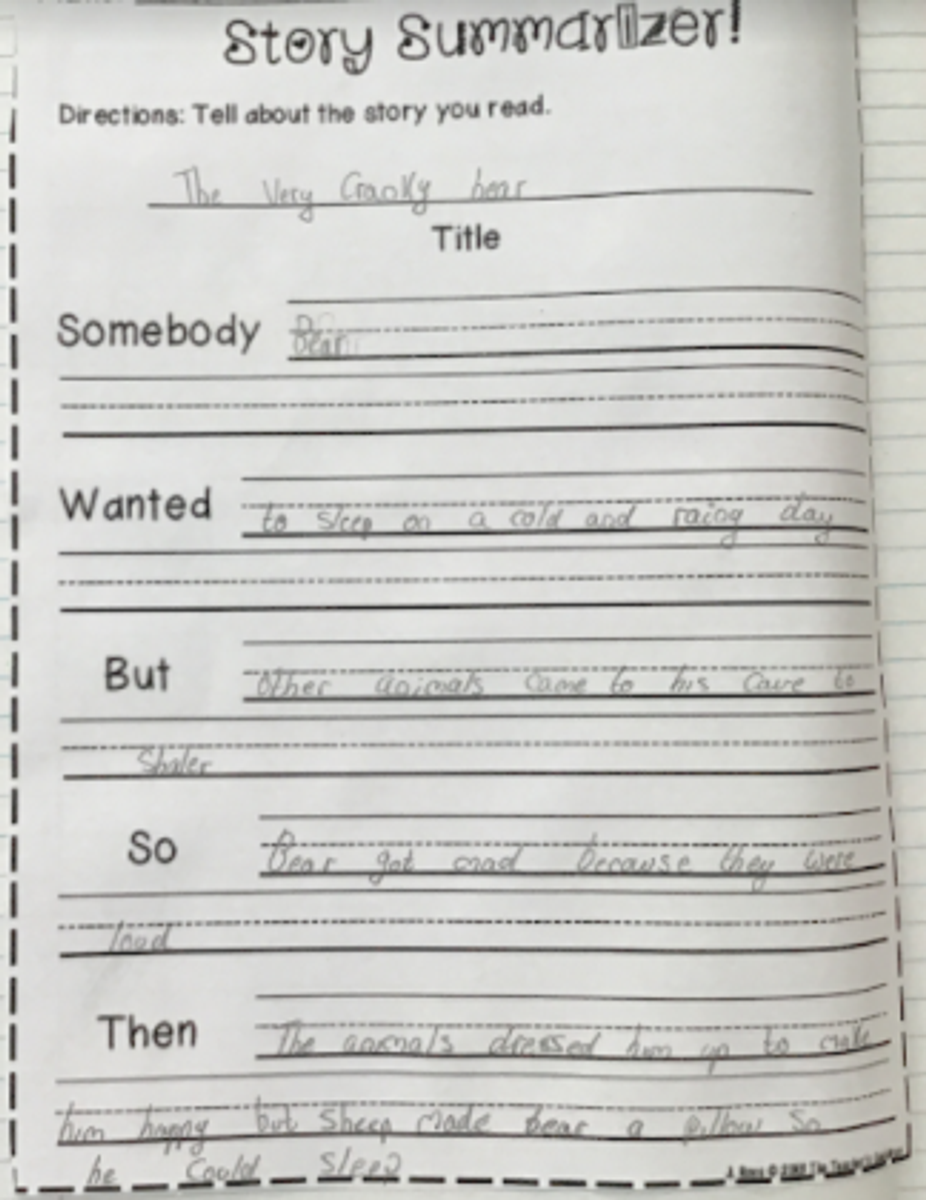 Story Summarizer!
Directions: Tell about the story you read.
The Very Cranky bear
Title
Somebody Bear
Wanted to sleep on a cold and raing day
But Other animals came to his cave to
Shaler
So Bear got mad because they were
loud
Then The animals dressed him up to make
him happy but Sheep made bear a pillow so
he could sleep